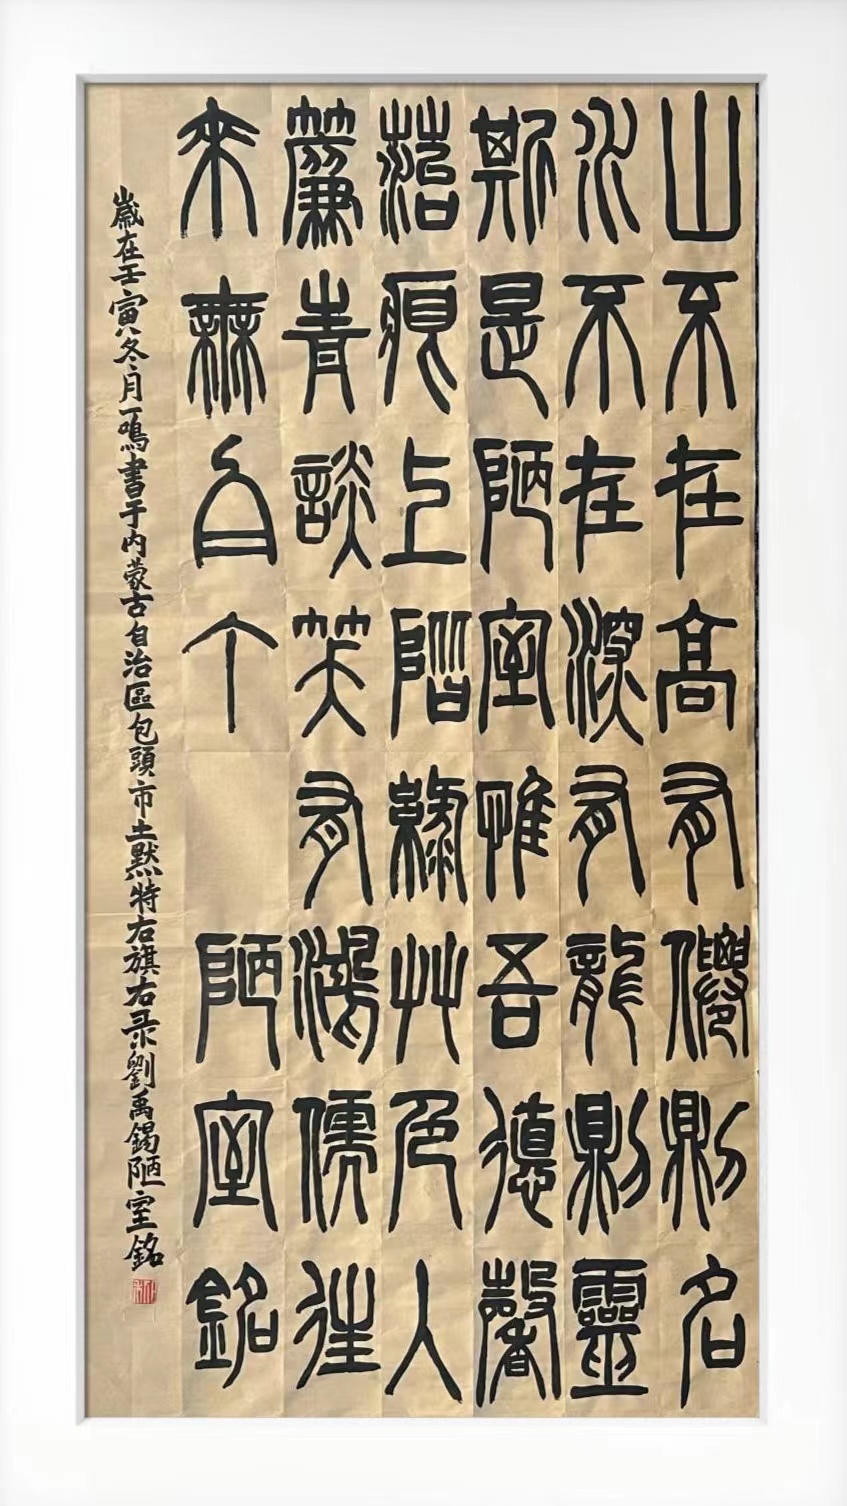 山不在高有僊則名
水不在深有龍則靈
斯是陋室惟吾德馨
菭痕上階綠艸色入
簾青談笑有鴻儒往
來無白丁 陋室銘
歲在壬寅冬月一鳴書于内蒙古自治區包頭市土默特右旗右录劉禹錫陋室銘